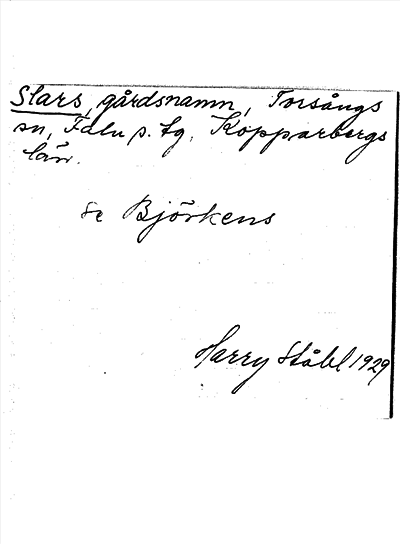 Slars, gårdsnamn, Torsångs
sn, Falu s. tg, Kopparbergs
län.
se Björkens
Harry Ståhl 1929